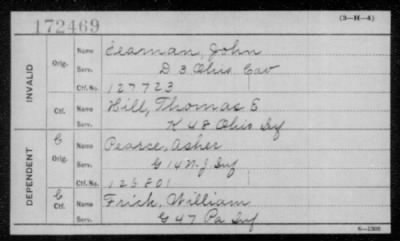 172469
(3-H-4)
INVALID
Orig.
Name Seaman, John
Serv. D 3 Ohio Cav
Ctf. No. 127723
Ctf.
Name Hill, Thomas S
Serv. K 48 Ohio Inf
DEPENDENT
C
Orig.
Name Pearce, Asher
Serv. G 14 N.J Inf
Ctf. No. 125801
C
Ctf.
Name Frick, William
Serv. G 47 Pa Inf